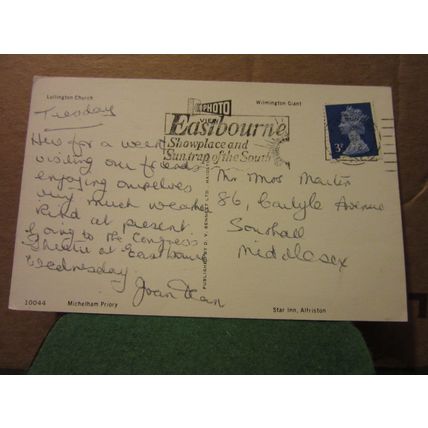 Lullington Church
Wilmington Giant
PHOTO
VIEW
Eastbourne
Showplace and
Suntrap of the South
3D
Tuesday
Here for a week
visiting our friends
enjoying ourselves
very much weather
kind at present.
Going to the Congress
Theatre at Eastbourne
Wednesday.
Joan Dean
Mr Mrs Martin
86, Carlyle Avenue
Southall
Middlesex
PUBLISHED BY D. V. BENNETT LTD.
10044
Michelham Priory
Star Inn, Alfriston